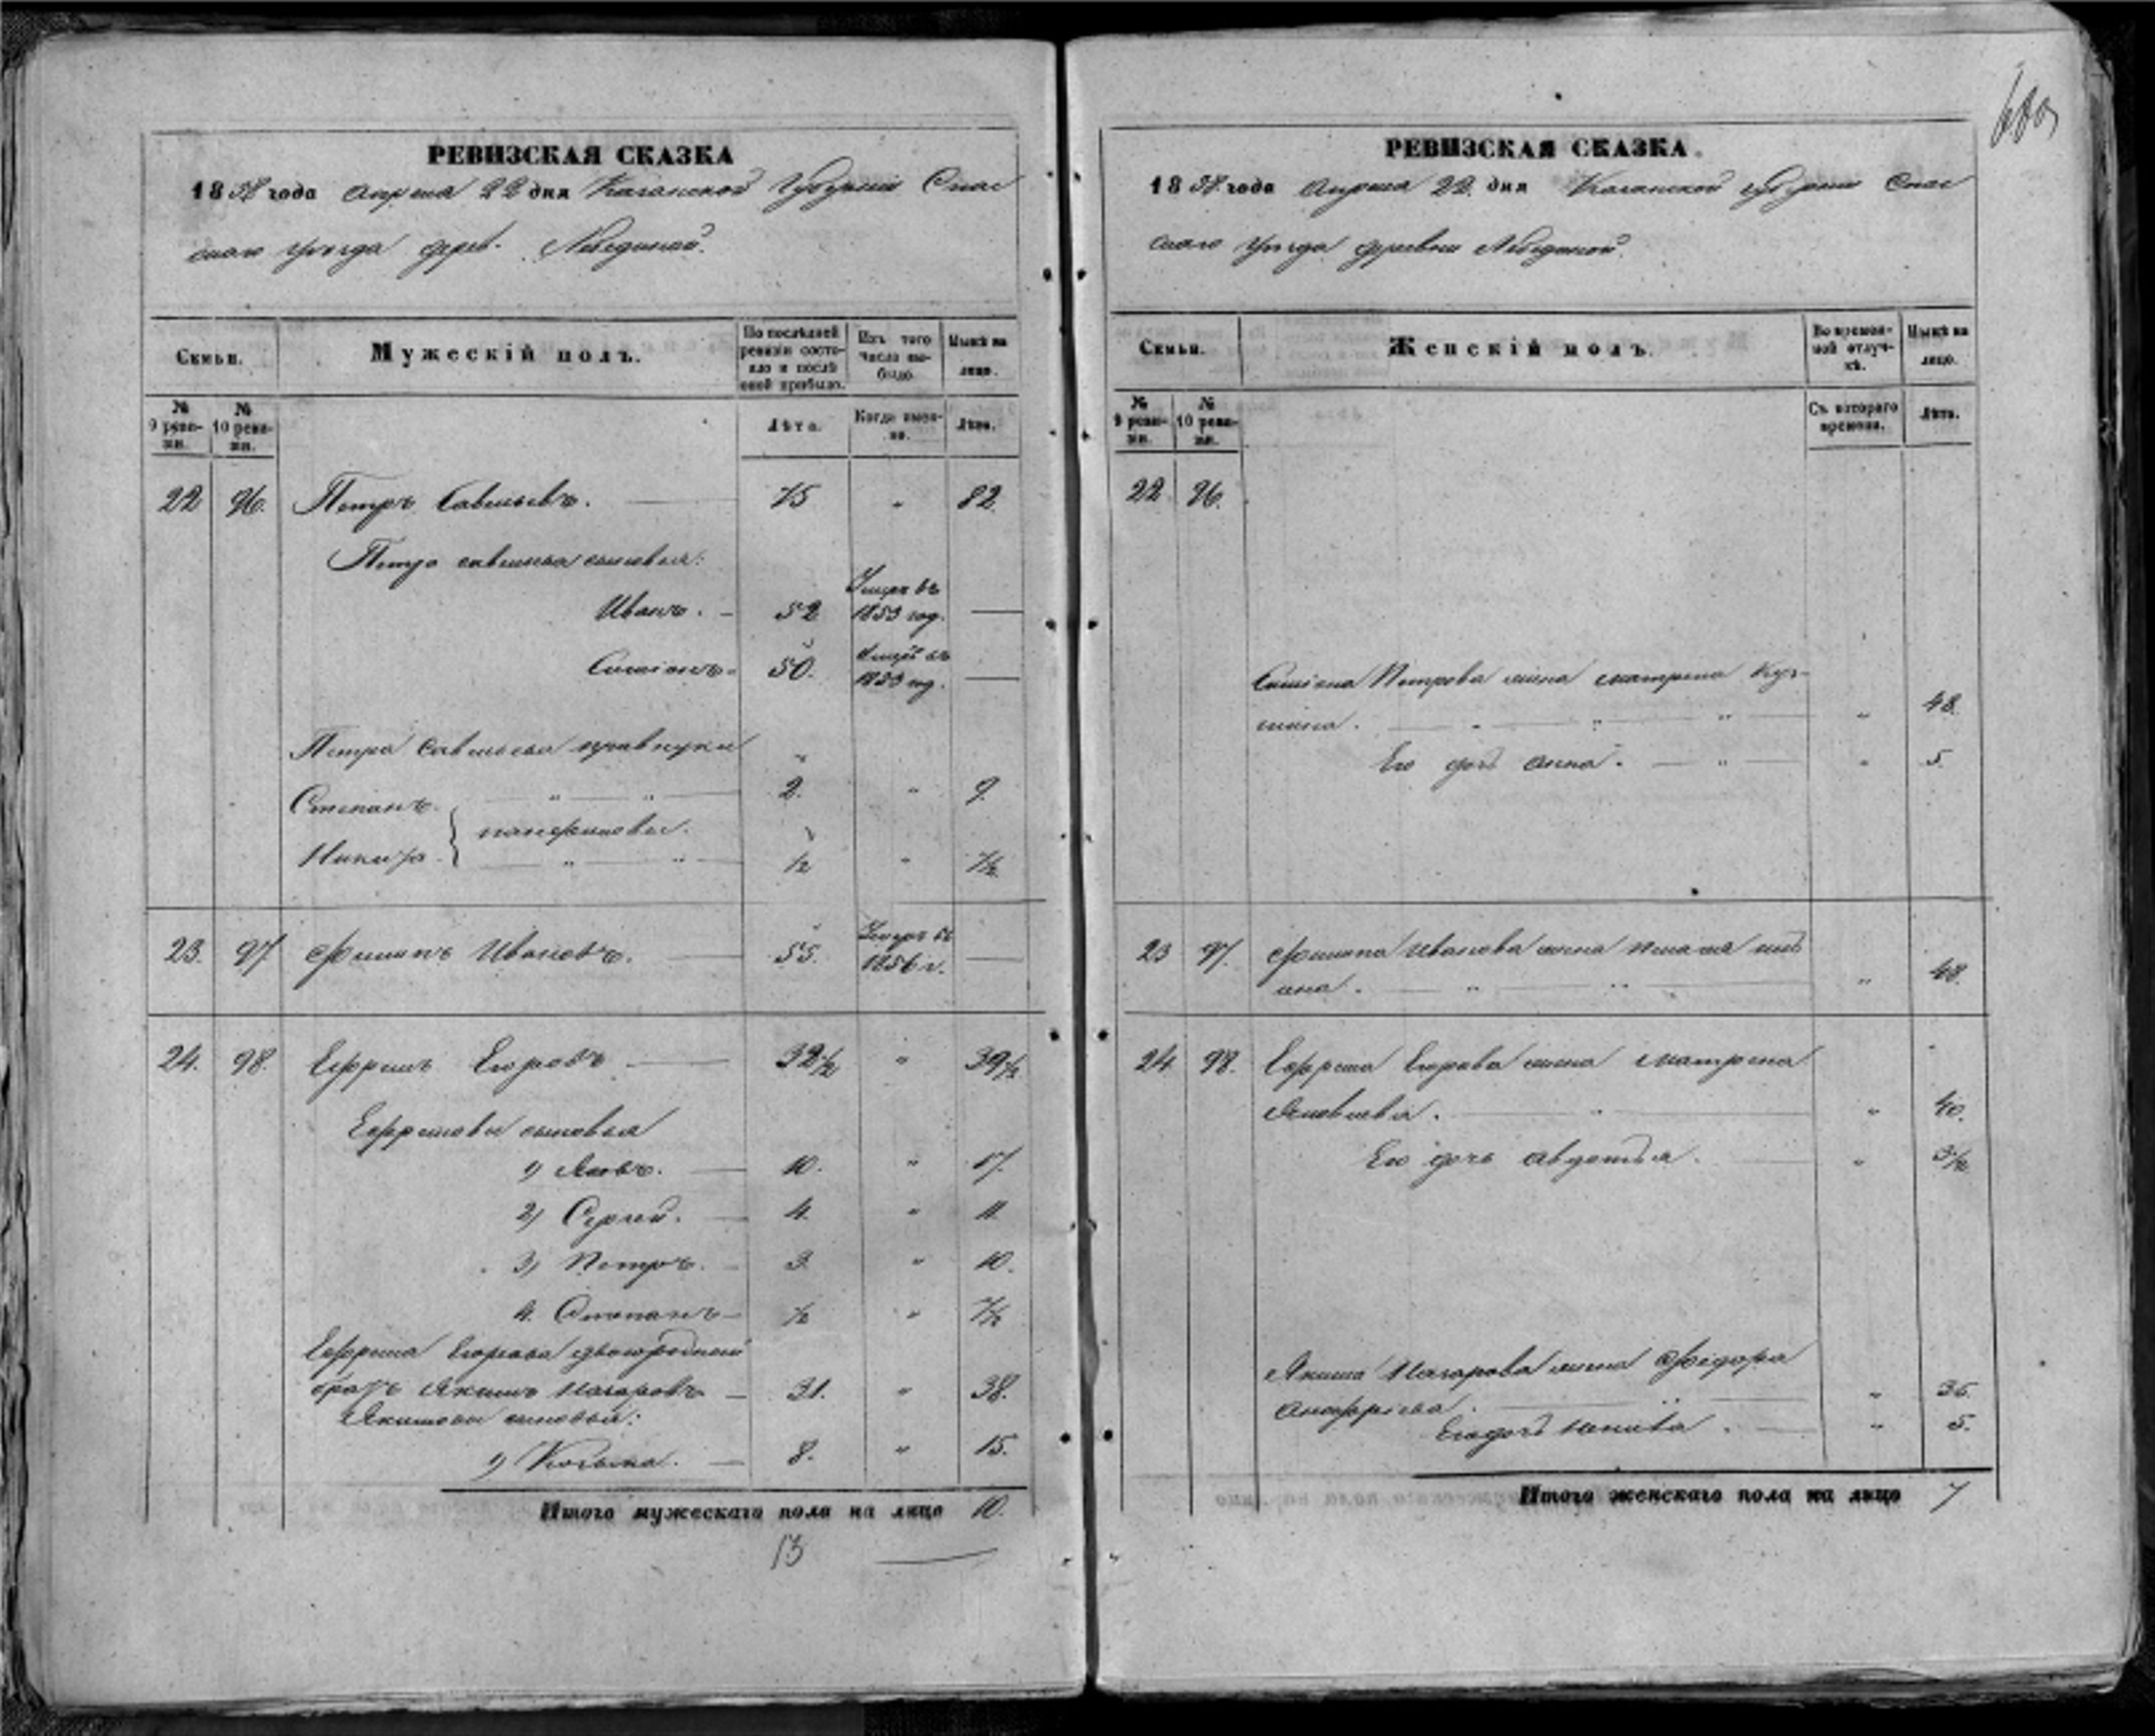 680
РЕВИЗСКАЯ СКАЗКА
1858 года Апреля 22 дня Казанской Губернии Спас
скаго уезда дерев. Лебединой.
Семьи.
Мужескій полъ.
По послѣдней ревизіи состояло и послѣ оной прибыло.
Изъ того числа выбыло.
Нынѣ на лицо.
№ 9 ревизіи.
№ 10 ревизіи.
Лѣта.
Когда именно.
Лѣта.
22 96. Петръ Савельевъ. 75 " 82
Петра Савельева сыновья:
Иванъ. 52 Умеръ въ 1853 год.
Симіонъ 50. Умеръ въ 1853 год.
Петра Савельева правнуки
Степанъ. 2. " 9.
Панфиловы.
Никита ½ " 7½
23. 97. Филипъ Ивановъ. 55. Умеръ въ 1856 г.
24. 98. Ефремъ Егоровъ 32½ " 39½
Ефремовы сыновья
1) Яковъ. 10. " 17.
2) Сергей. 4. " 11
3) Петръ. 3 " 10.
4. Степанъ ½ " 7½
Ефрема Егорова двоюродный
братъ Якимъ Назаровъ 31. " 38.
Якимовы сыновья:
1) Козьма. 8. " 15.
Итого мужескаго пола на лицо 10.
13
РЕВИЗСКАЯ СКАЗКА.
1858 года Апреля 22. дня Казанской губернии Спас
скаго уезда деревни Лебединой.
Семьи.
Женскій полъ.
Во временной отлучкѣ.
Нынѣ на лицо.
№ 9 ревизіи.
№ 10 ревизіи.
Съ котораго времени.
Лѣта.
22 96.
Симіона Петрова жена Матрена Кузь-
мина. " 48.
Его дочь Анна. " 5.
23 97. Филипа Иванова жена
" 48.
24 98. Ефрема Егорова жена Матрена
Яковлева. " 40.
Его дочь Авдотья. " 3½
Якима Назарова жена Федора
" 36.
Его дочь " 5.
Итого женскаго пола на лицо 7